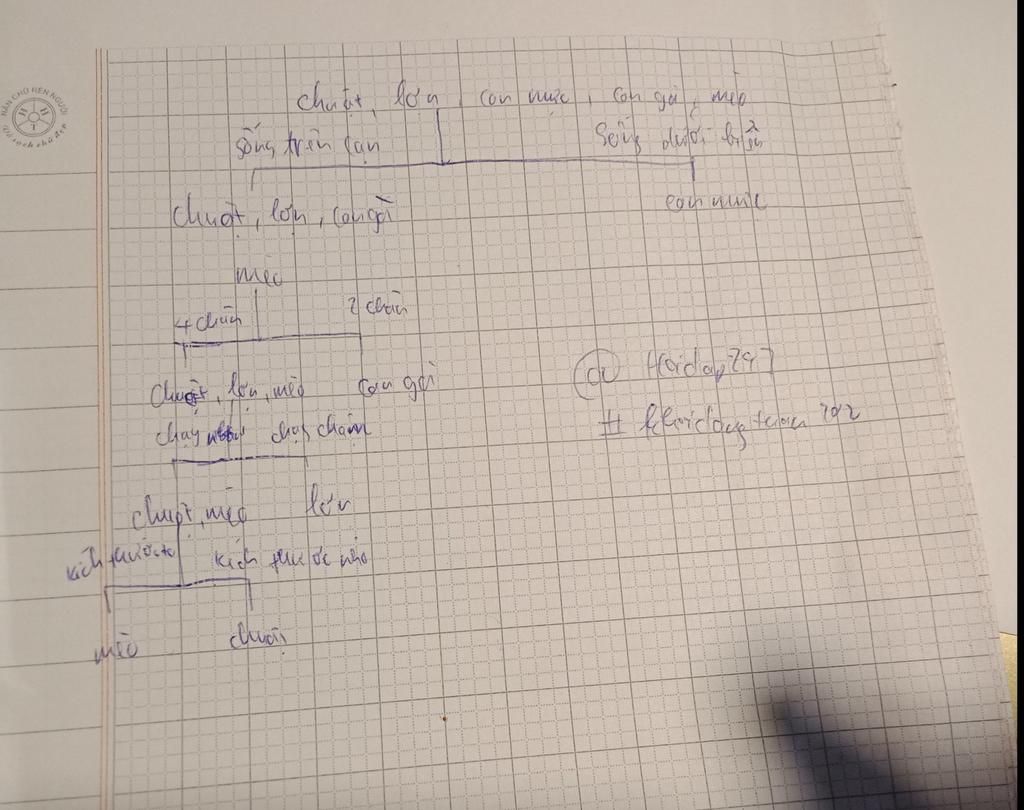 chuột, lợn, con mực, con gà, mèo
sống trên cạn sống dưới biển
chuột, lợn, con gà
con mực
mèo
4 chân 2 chân
chuột, lợn, mèo con gà
chạy chạy chậm
chuột, mèo lợn
kích thước to kích thước nhỏ
mèo chuột
Hoidap247
# khoidongtuan